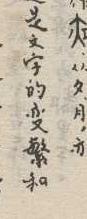 以夕月，亦
是文字的变繁和